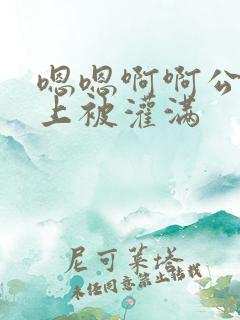 嗯嗯啊啊公
上被灌满
尼可莱塔
未经同意禁止转载